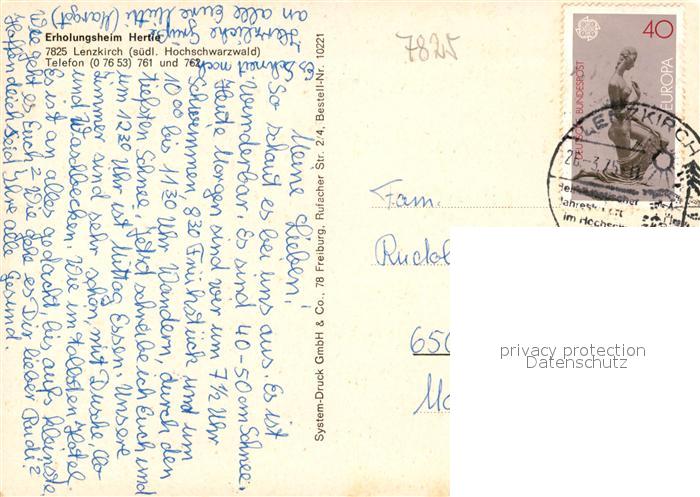 Erholungsheim Hertie
7825 Lenzkirch (südl. Hochschwarzwald)
Telefon (0 76 53) 761 und 762
Meine Lieben!
So schaut es bei uns aus. Es ist
Wunderbar. Es sind 40-50 cm Schnee.
Heute Morgen sind wir um 7½ Uhr
Schwimmen 8 30 Frühstück und um
10 00 bis 11 30 Uhr Wandern, durch den
tiefsten Schnee. Jetzt schreibe ich Euch und
um 12 30 Uhr ist Mittag Essen. Unsere
Zimmer sind sehr schön, mit Dusche, Clo
und Waschbecken. Wie im tollsten Hotel.
Es ist an alles gedacht, bis aufs kleinste.
Wie geht es Euch? Wie geht es Dir lieber Rudi?
Hoffendlich seid ihr alle Gesund.
Es schneit noch
Herzliche Grüße
an alle Eure Mutti (Margot)
System-Druck GmbH & Co., 78 Freiburg, Rufacher Str. 2/4, Bestell-Nr. 10221
7825
40
DEUTSCHE BUNDESPOST
EUROPA
LENZKIRCH
Jahres
im Hochsch
Fam.
Rudol
650
privacy protection
Datenschutz